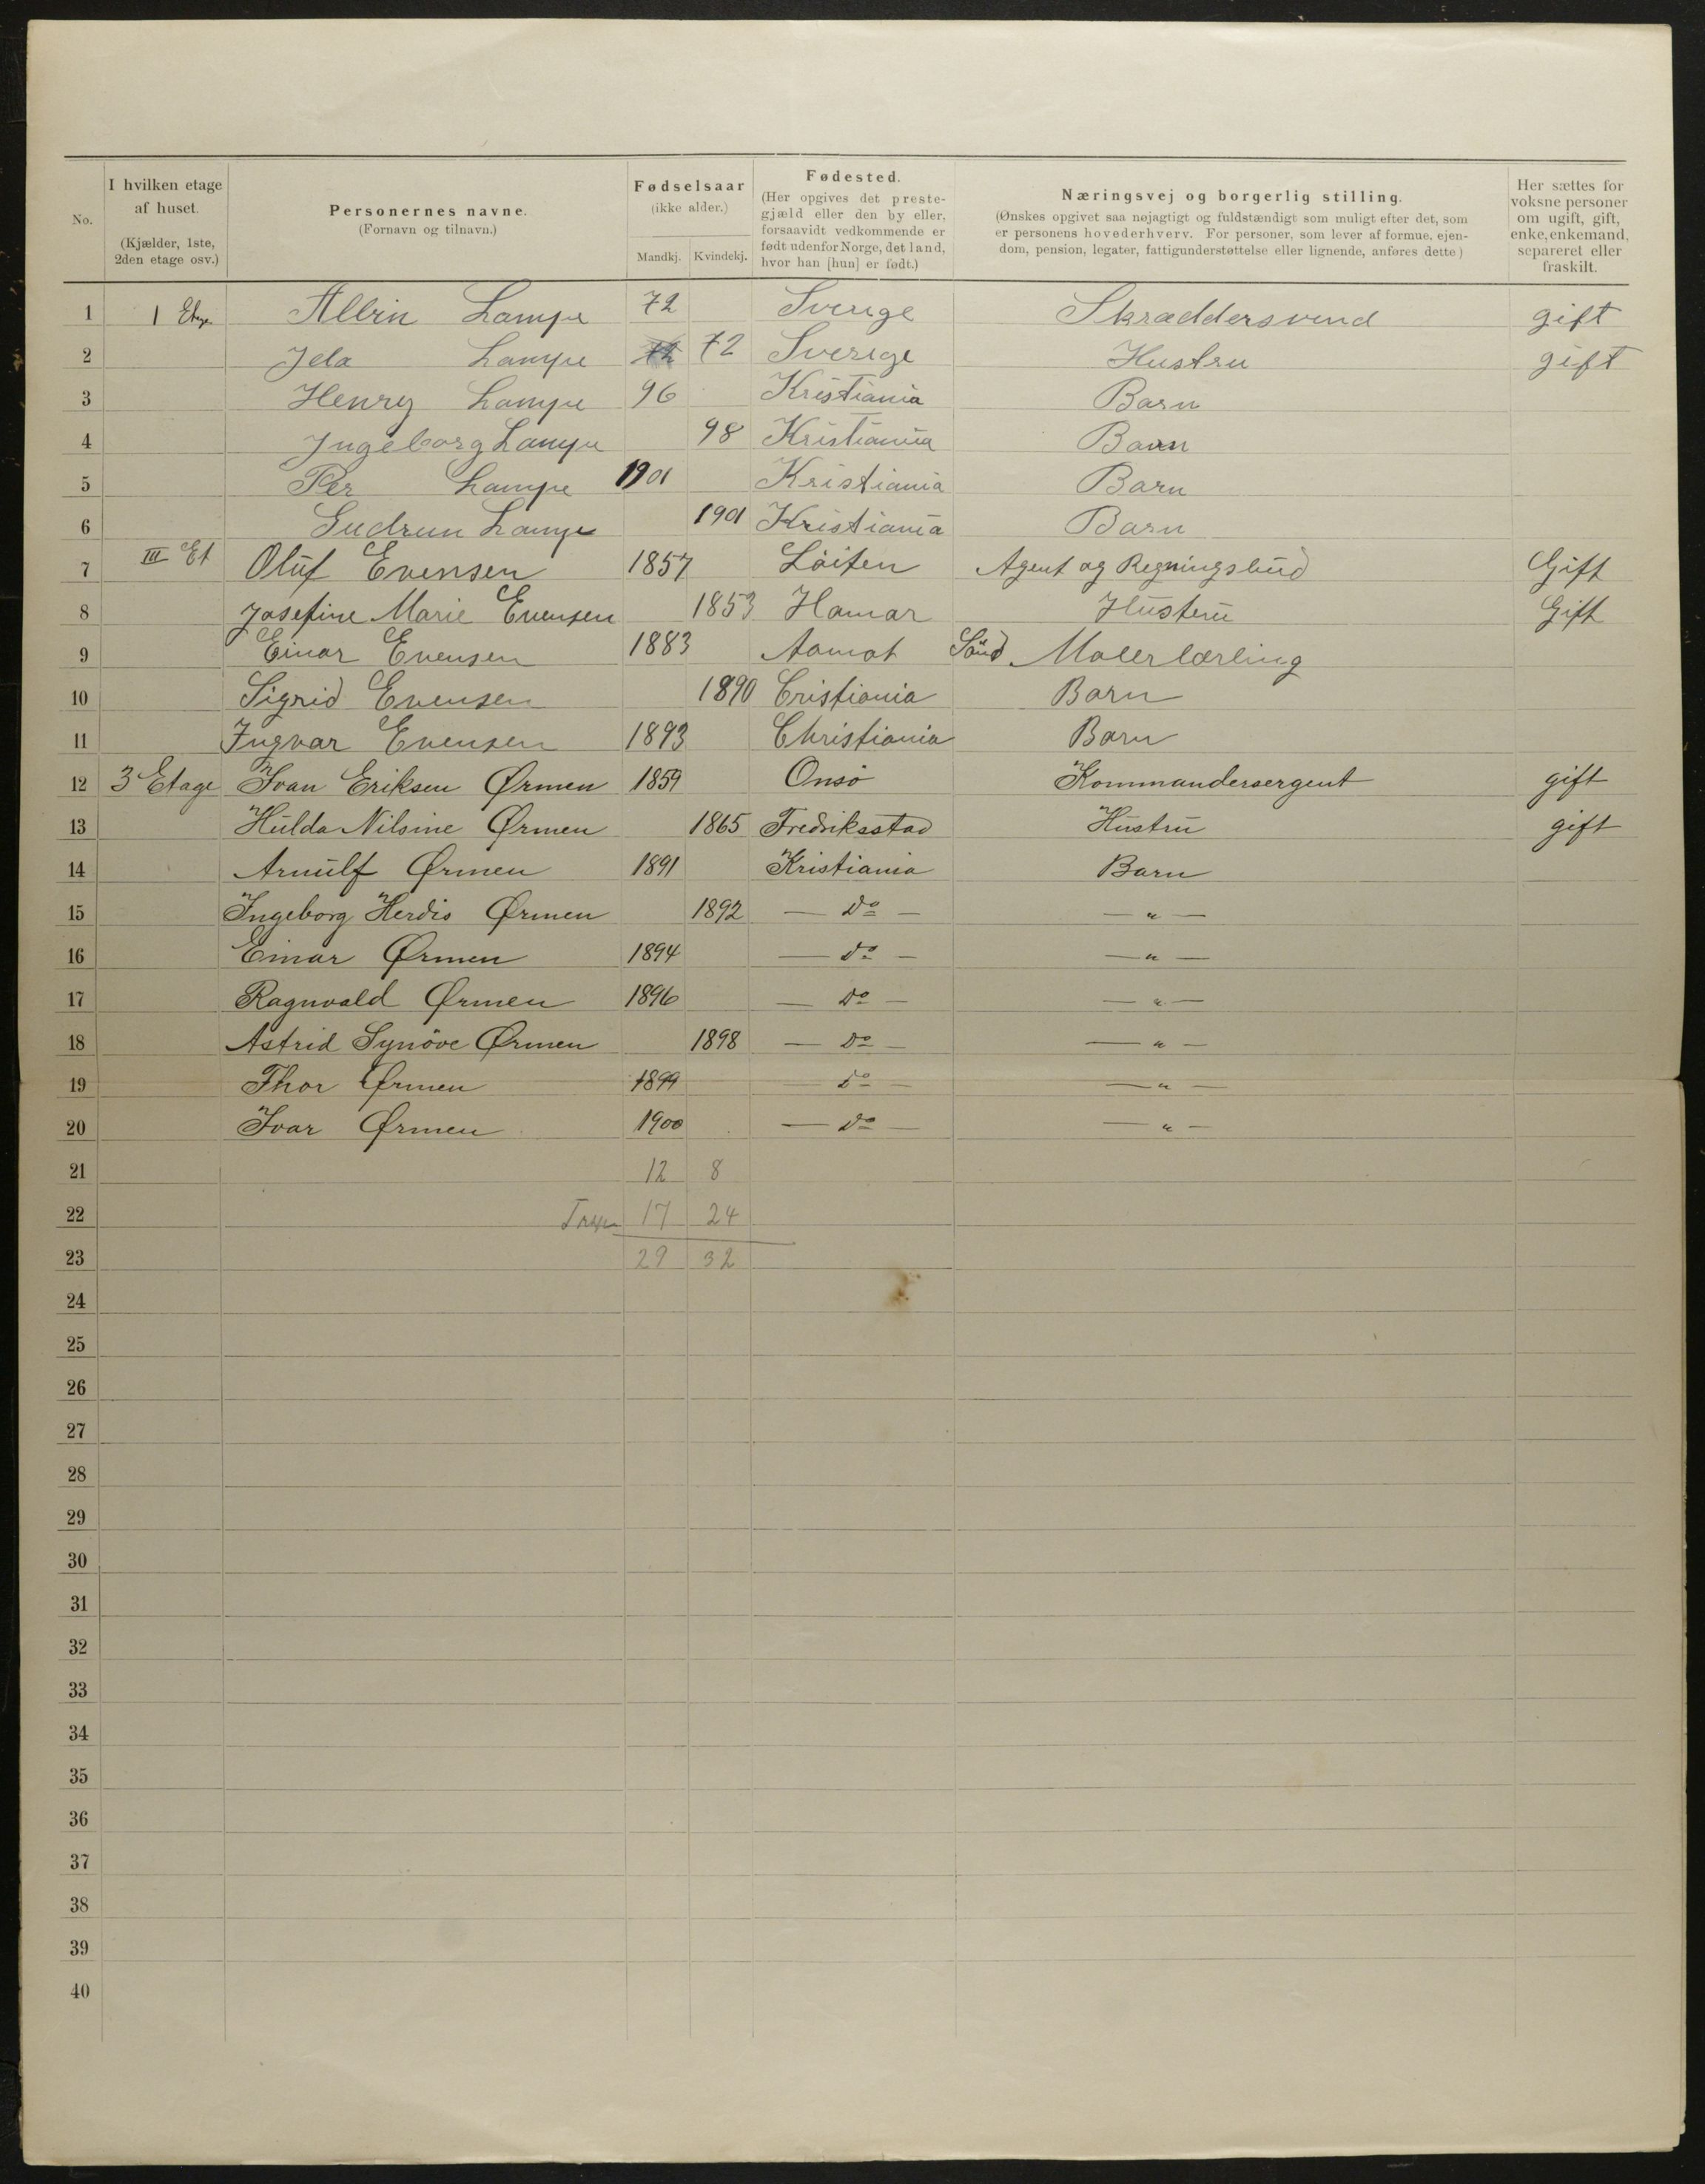 No.
I hvilken etage af huset. (Kjælder, 1ste, 2den etage osv.)
Personernes navne. (Fornavn og tilnavn.)
Fødselsaar (ikke alder.) Mandkj. Kvindekj.
Fødested. (Her opgives det prestegjæld eller den by eller, forsaavidt vedkommende er født udenfor Norge, det land, hvor han [hun] er født.)
Næringsvej og borgerlig stilling. (Ønskes opgivet saa nøjagtigt og fuldstændigt som muligt efter det, som er personens hovederhverv. For personer, som lever af formue, ejendom, pension, legater, fattigunderstøttelse eller lignende, anføres dette)
Her sættes for voksne personer om ugift, gift, enke, enkemand, separeret eller fraskilt.
1 1 Etage Albin Lampe 72 Sverige Skræddersvend gift
2 Jda Lampe 72 Sverige Hustru gift
3 Henry Lampe 96 Kristiania Barn
4 Ingeborg Lampe 98 Kristiania Barn
5 Per Lampe 1901 Kristiania Barn
6 Gudrun Lampe 1901 Kristiania Barn
7 III Et Oluf Evensen 1857 Løiten Agent og Regningsbud Gift
8 Josefine Marie Evensen 1853 Hamar Hustru Gift
9 Einar Evensen 1883 Aamot Malerlærling
10 Sigrid Evensen 1890 Cristiania Barn
11 Ingvar Evensen 1893 Christiania Barn
12 3 Etage Ivan Eriksen Ørmen 1859 Onsö Kommandersergent gift
13 Hulda Nilsine Ørmen 1865 Fredriksstad Hustru gift
14 Arnulf Ørmen 1891 Kristiania Barn
15 Ingeborg Herdis Ørmen 1892 — Do — — " —
16 Einar Ørmen 1894 — do — — " —
17 Ragnvald Ørmen 1896 — Do — — " —
18 Astrid Synöve Ørmen 1898 — Do — — " —
19 Thor Ørmen 1899 — Do — — " —
20 Ivar Ørmen 1900 — Do — — " —
21 12 8
22 17 24
23 29 32
24
25
26
27
28
29
30
31
32
33
34
35
36
37
38
39
40